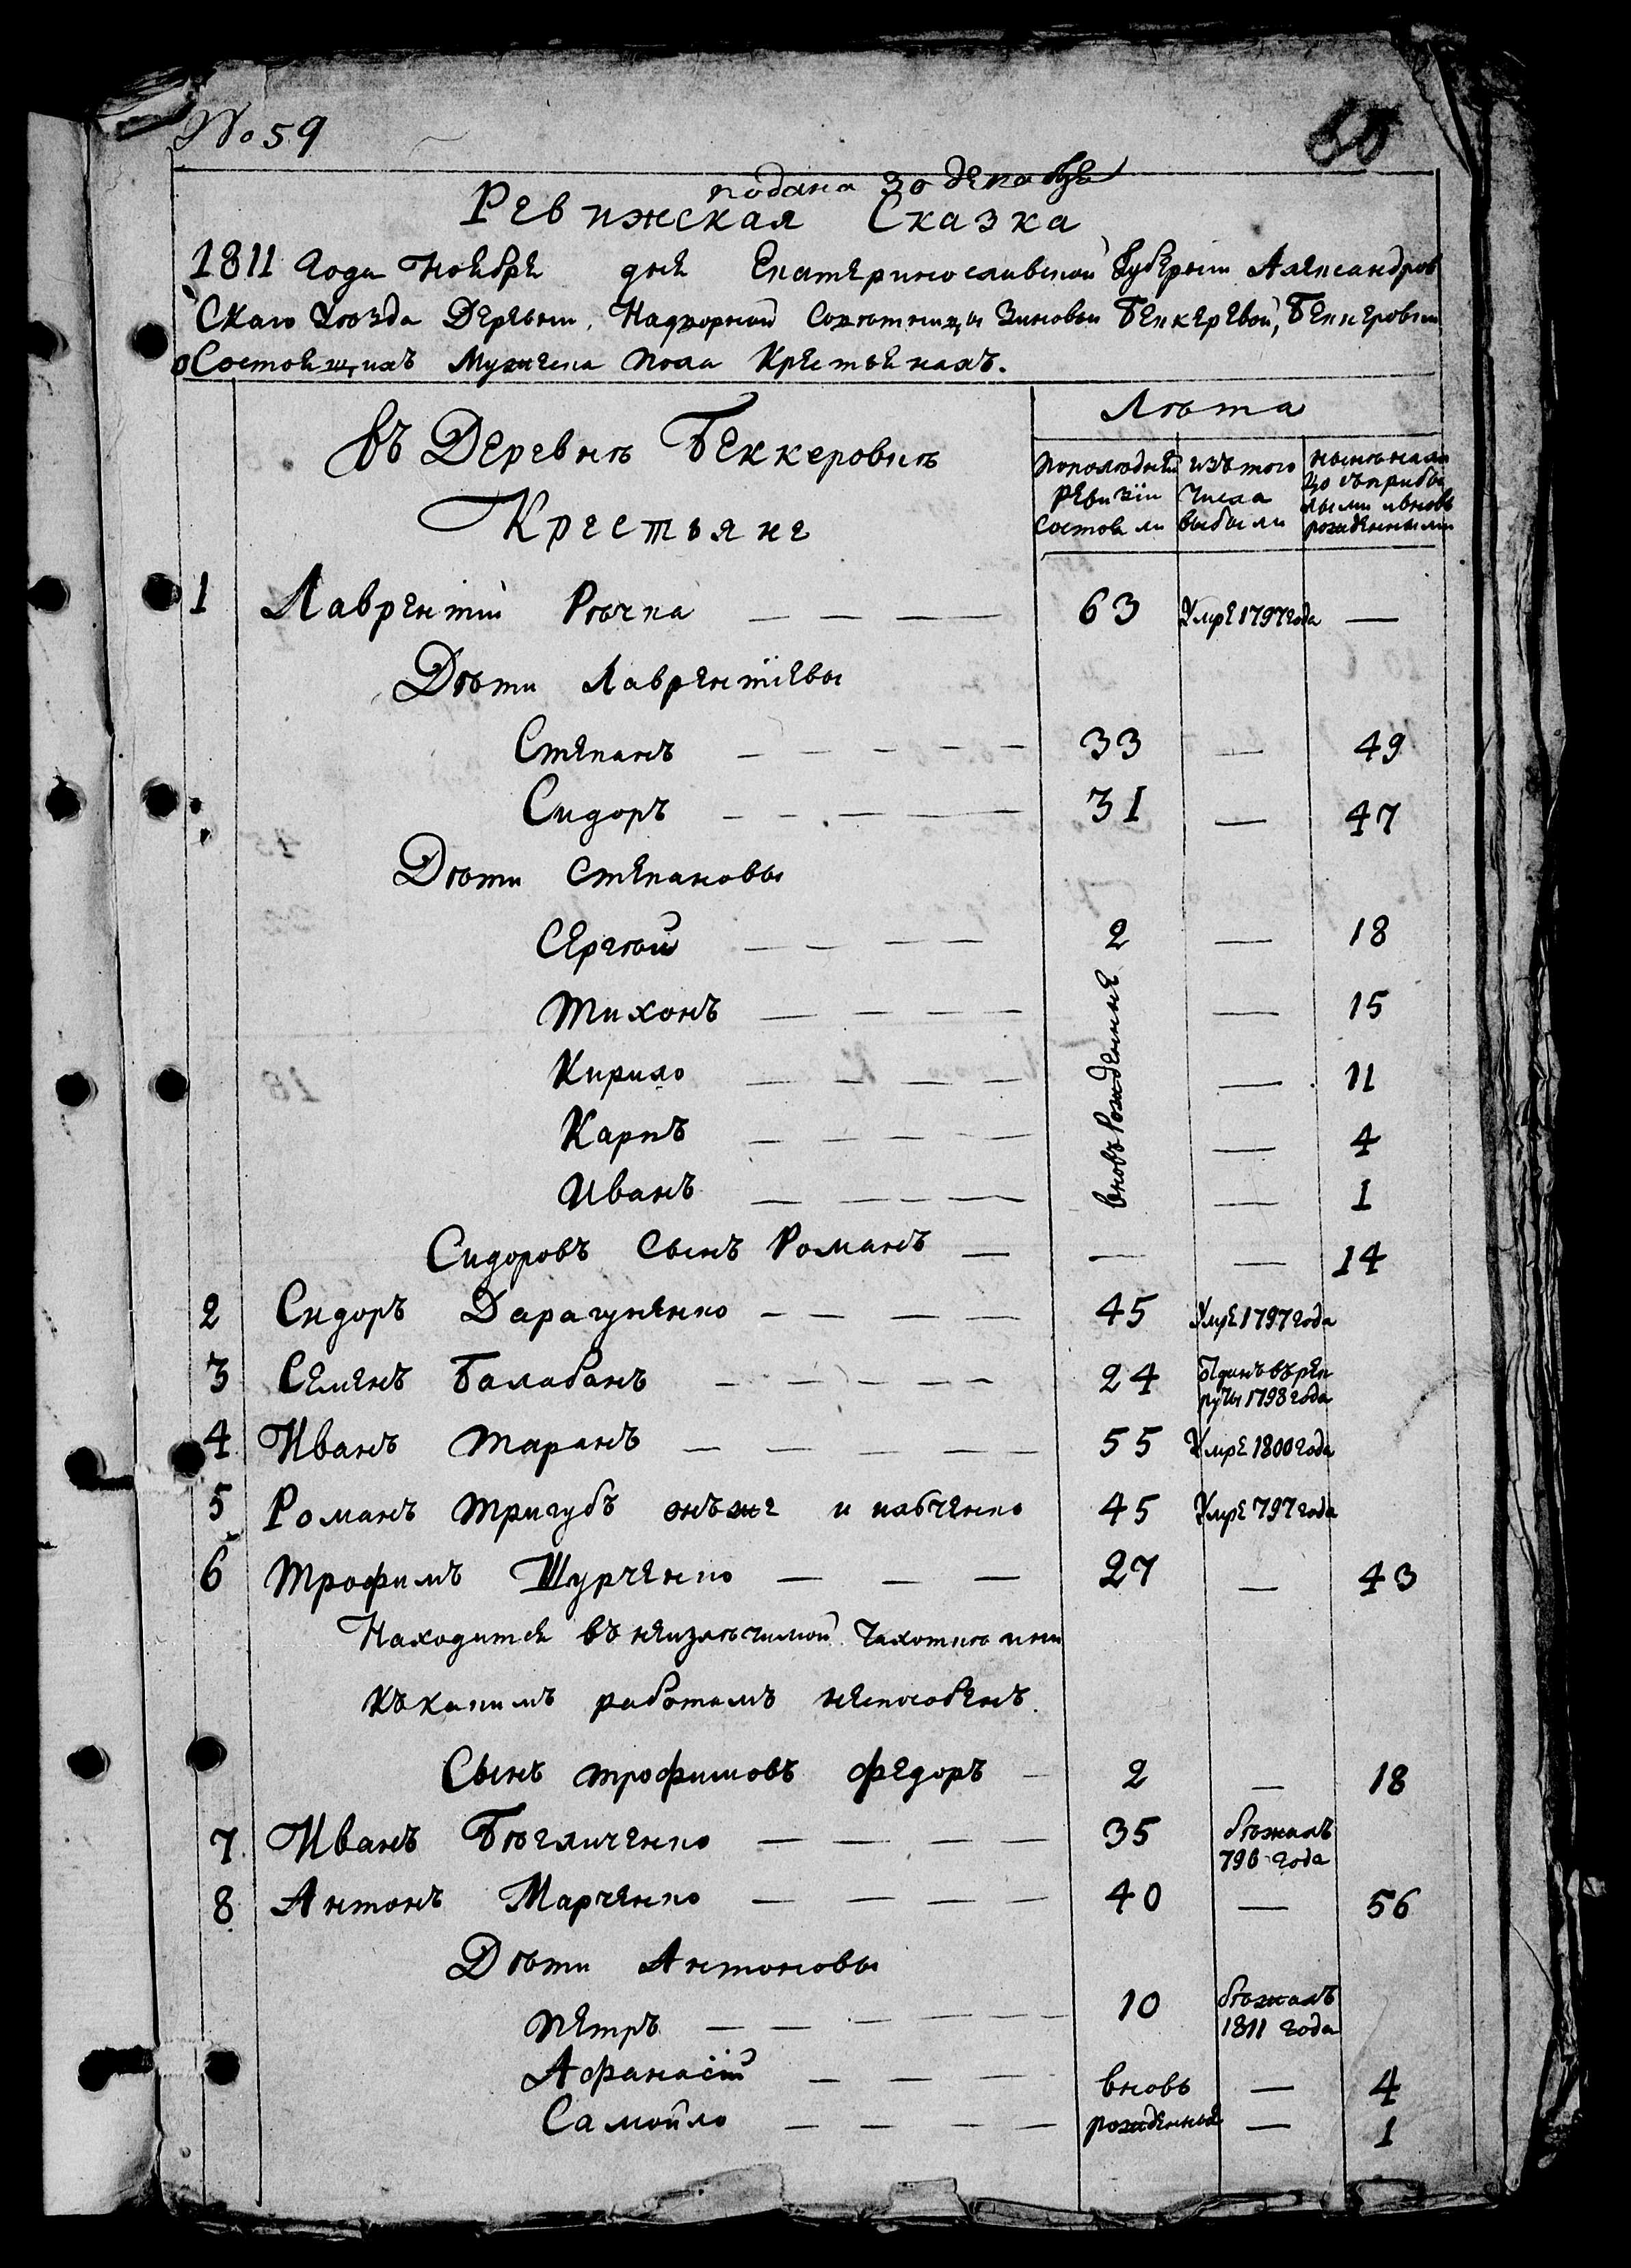 № 59
60
подана 30 декабря
Ревижская Сказка
1811 Года Ноября дня Екатеринославской Губернии Александров
Скаго Уезда Деревни, Надворной Советницы Зиновьи Беккеревой, Беккеровки
о Состоящихъ Мужеска пола Крестьянахъ.
Въ Деревнѣ Беккеровкѣ
Крестьяне
Лѣта
По послѣдней ревизіи состояли
изъ того числа выбыли
нынѣ на лицо съ прибылыми и вновь рожденными
1 Лаврентій Рѣчка — — — — 63 Умре 1797 года —
Дѣти Лаврентіевы
Степанъ — — — — — 33 — 49
Сидоръ — — — — 31 — 47
Дѣти Степановы
Сергѣй — — — — 2 — 18
вновь рожденные
Тихонъ — — — — — 15
Кирило — — — — — 11
Карпъ — — — — — 4
Иванъ — — — — — 1
Сидоровъ Сынъ Романъ — — — 14
2 Сидоръ Дарагуненко — — — — 45 Умре 1797 года
3 Семенъ Балабанъ — — — — — 24 Отданъ въ рекруты 1798 года
4 Иванъ Таранъ — — — — — 55 Умре 1800 года
5 Романъ Тригубъ онъ же и 45 Умре 797 года
6 Трофимъ Шурченко — — — 27 — 43
Находится въ неизлѣчимой Чахоткѣ и ни
къ какимъ работамъ неспособенъ.
Сынъ Трофимовъ Федоръ — 2 — 18
7 Иванъ Бѣгличенко — — — — 35 бѣжалъ 796 года
8 Антонъ Марченко — — — — 40 — 56
Дѣти Антоновы
Петръ — — — — — 10 бѣжалъ 1811 года
Афанасій — — — вновь — 4
Самойло — — — — рожденные — 1